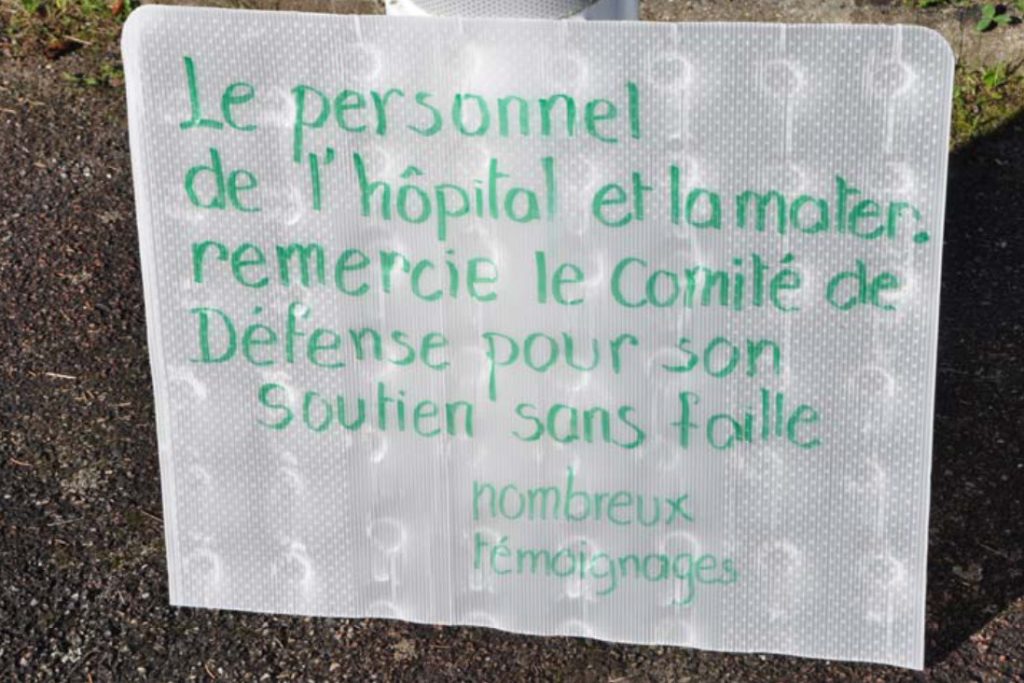 Le personnel
de l'hôpital et la mater.
remercie le Comité de
Défense pour son
Soutien sans faille
nombreux
témoignages